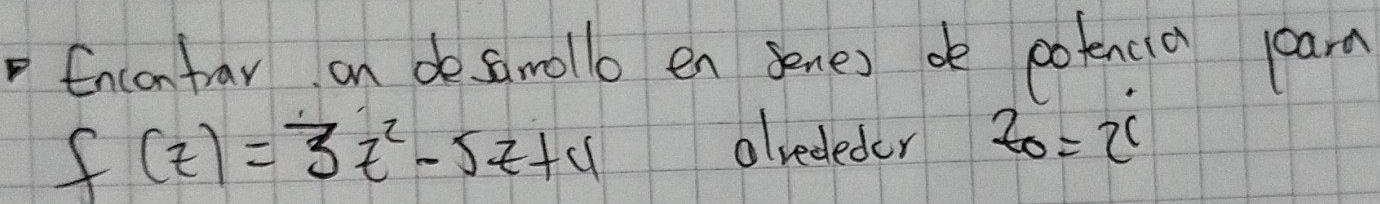 Encontrar un desarrollo en series de potencia para
f(z) = 3z² - 5z + 4 alrededor z₀ = 2i